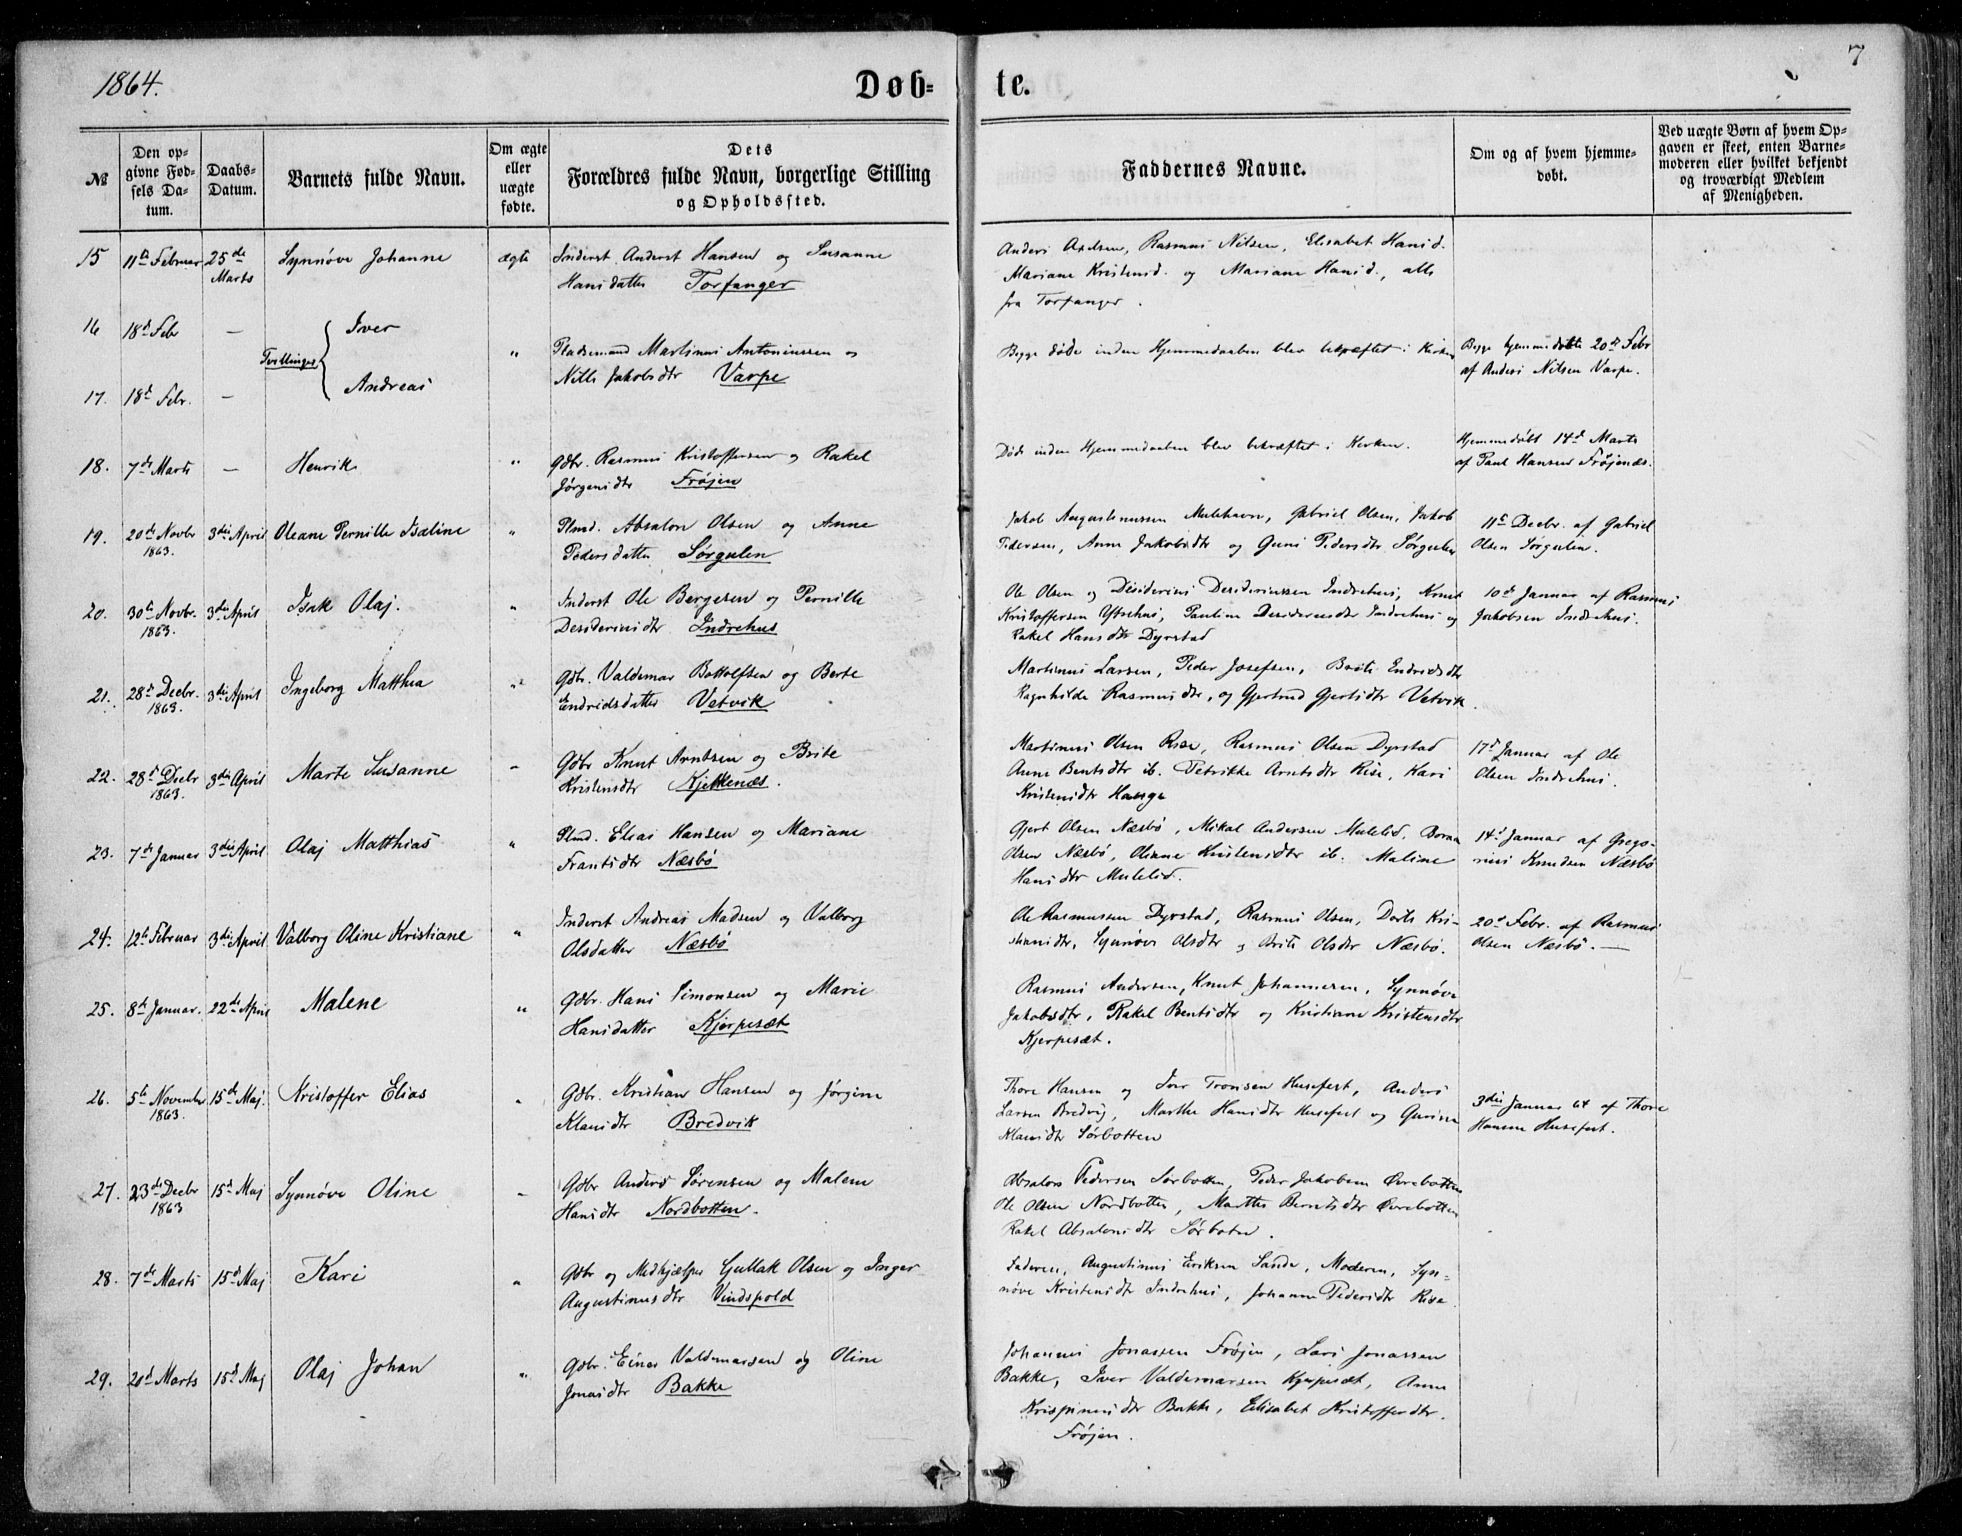 1864.
Døb-
te.
7
№
Den op-
givne Fød-
sels Da-
tum.
Daabs-
Datum.
Barnets fulde Navn.
Om ægte
eller
uægte
fødte.
Dets
Forældres fulde Navn, borgerlige Stilling
og Opholdssted.
Faddernes Navne.
Om og af hvem hjemme-
døbt.
Ved uægte Børn af hvem Op-
gaven er skeet, enten Barne-
moderen eller hvilket bekjendt
og troværdigt Medlem
af Menigheden.
15 11te Februar 25de Marts Synnøve Johanne ægte Inderst Anderst Hansen og Susanne
Hansdatter Torfanger
Anders Axelsen, Rasmus Nilsen, Elisabet Hansd.
Mariane Kristensd. og Mariane Hansd., alle
fra Torfanger.
16 18d Feb — Tvillinger Iver
17. 18d Febr. — Andreas
" Pladsemand Martinus Antoniussen og
Nille Jakobsdtr Varpe
Begge døde inden Hjemmedaaben blev bekræftet i Kirken
Begge hjemmedøbte 20de Febr
af Anders Nilsen Varpe.
18. 7de Marts — Henrik " Gdbr. Rasmus Kristoffersen og Rakel
Jørgensdtr Frøjen
Død inden Hjemmedaaben blev bekræftet i Kirken.
Hjemmedøbt 14d Marts
af Paul Hansen Frøjenæs.
19. 20de Novbr 1863. 3die April Oleane Pernille Iseline " Plmd. Absalon Olsen og Anne
Pedersdatter Sørgulen
Jakob Augustinussen Mulehavn, Gabriel Olsen, Jakob
Pedersen, Anne Jakobsdtr og Guni Pedersdtr Sørgulen
11te Decbr. af Gabriel
Olsen Sørgulen.
20. 30te Novbr. 1863. 3die April Isak Olaj. " Inderst Ole Bergesen og Pernille
Desideriusdtr Indrehus
Ole Olsen og Desiderius Desideriussen Indrehus, Knut
Kristoffersen Ytrehus, Pauline Desideriusdtr Indrehus og
Rakel Hansdtr Dyrstad
10de Januar af Rasmus
Jakobsen Indrehus.
21. 28d Decbr. 1863. 3die April Ingeborg Matthea " Gdbr. Valdemar Bottolfsen og Berte
Endridsdatter Vetvik
Martinus Larsen, Peder Josefsen, Brite Endridsdtr
Ragnhilde Rasmusdtr, og Gjertrud Gjertsdtr Vetvik.
22. 28d Decbr 1863. 3die April Marte Susanne " Gdbr Knut Arntsen og Brite
Kristensdtr Kjelkenæs.
Martinus Olsen Rise, Rasmus Olsen Dyrstad
Anne Bentsdtr ib. Petrikke Arntsdtr Rise, Kari
Kristensdtr Hauge
17d Januar af Ole
Olsen Indrehus.
23. 7de Januar 3die April Olaj Matthias " Plmd. Elias Hansen og Mariane
Frantsdtr Næsbø
Gjert Olsen Næsbø, Mikal Andersen Mulelid,
Olsen Næsbø, Oliane Kristensdtr ib. Maline
Hansdtr Mulelid.
14d Januar af Grego-
rius Knudsen Næsbø
24. 12te Februar 3die April Valborg Oline Kristiane " Inderst Andreas Madsen og Valborg
Olsdatter Næsbø
Ole Rasmussen Dyrstad, Rasmus Olsen, Dorte Kri-
stiansdtr, Synnøve Olsdtr og Brite Olsdtr Næsbø.
20d Febr. af Rasmus
Olsen Næsbø. —
25. 8de Januar. 22de April Malene " Gdbr. Hans Simonsen og Marie
Hansdatter Kjerpesæt
Rasmus Andersen, Knut Johannesen, Synnøve
Jakobsdtr, Rakel Bentsdtr og Kristiane Kristensdtr
Kjerpesæt.
26. 5te November 1863. 15de Maj. Kristoffer Elias " Gdbr. Kristian Hansen og Jørgine
Klausdtr Bredvik
Thore Hansen og Iver Tronsen Husefest, Anders
Larsen Bredvig, Marthe Hansdtr Husefest og Gurine
Klausdtr Sørbotten
3die Januar 64 af Thore
Hansen Husefest.
27. 23de Decbr 1863 15d Maj Synnøve Oline " Gdbr Anders Sørensen og Malene
Hansdtr Nordbotten.
Absalon Pedersen Sørbotten, Peder Jakobsen Ovrebotten
Ole Olsen Nordbotten, Marthe Berntsdtr Ovrebotten
Rakel Absalonsdtr Sørbotten.
28. 7de Marts 15d Maj Kari " Gdbr og Medhjælper Gullak Olsen og Inger
Augustinusdtr Vindspold
Faderen, Augustinus Eriksen Sande, Moderen, Syn-
nøve Kristensdtr Indrehus, Johanne Pedersdtr Rise.
29. 20d Marts 15d Maj Olaj Johan " Gdbr. Einar Valdemarsen og Oline
Jonasdtr Bakke
Johannes Jonassen Frøjen, Lars Jonassen
Bakke, Iver Valdemarsen Kjerpesæt, Anne
Krispinusdtr Bakke, Elisabet Kristoffersdtr.
Frøjen.